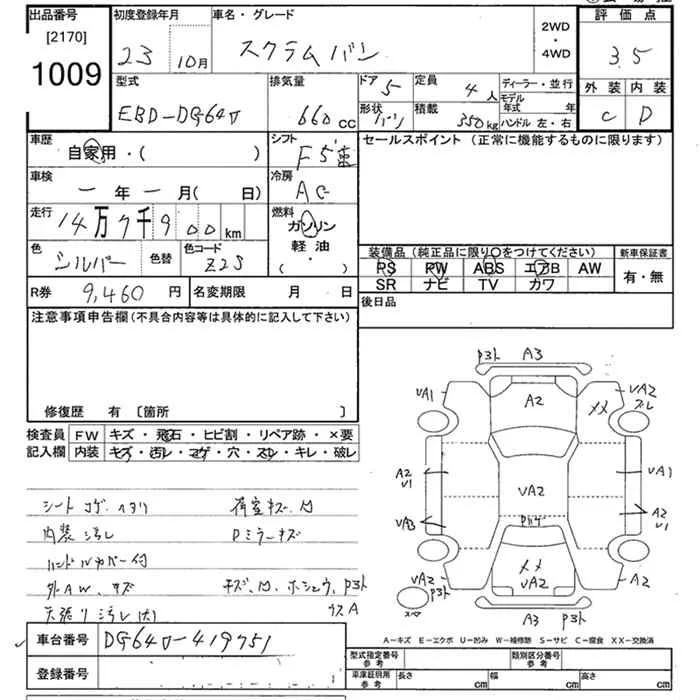 出品番号 初度登録年月 車名・グレード 2WD・4WD 評価点
[2170]
1009
23 10月 スクラムバン 3.5
型式 排気量 ドア 5 定員 4人 ディーラー・並行 外装 内装
EBD-DG64V 660cc 形状 バン 積載 350kg モデル年式 年 ハンドル 左・右 C D
車歴 シフト セールスポイント (正常に機能するものに限ります)
自家用・( ) F5速
車検 冷房
ー年ー月( 日) AC
走行 燃料
14万7千900km ガソリン
軽油
・( )
色 シルバー 色替 色コード Z2S
装備品 (純正品に限り○をつけてください) 新車保証書
PS PW ABS エアB AW 有・無
SR ナビ TV カワ
R券 9,460円 名変期限 月 日
後日品
注意事項申告欄 (不具合内容等は具体的に記入して下さい)
修復歴 有 [箇所 ]
検査員 FW キズ・飛石・ヒビ割・リペア跡・×要
記入欄 内装 キズ・汚レ・コゲ・穴・スレ・キレ・破レ
シート コゲ、ヘタリ 荷室キズ、凹
内装 汚レ Dミラーキズ
ハンドルカバー付
外AW、キズ キズ、凹、ホシュウ、P3ト
天張り汚レ(大) ウスA
P3ト A3
VA1 A2 VA2
××
A2 VA1
V1
VA2 A2
VA3 V1
VA2 ×× A2
P3ト VA2
スペア A3 P3ト
A-キズ E-エクボ U-凹み W-補修跡 S-サビ C-腐食 XX-交換済
車台番号 DG64V-419751
登録番号
型式指定番号 参考 類別区分番号 参考
車庫証明用 参考 長さ cm 幅 cm 高さ cm